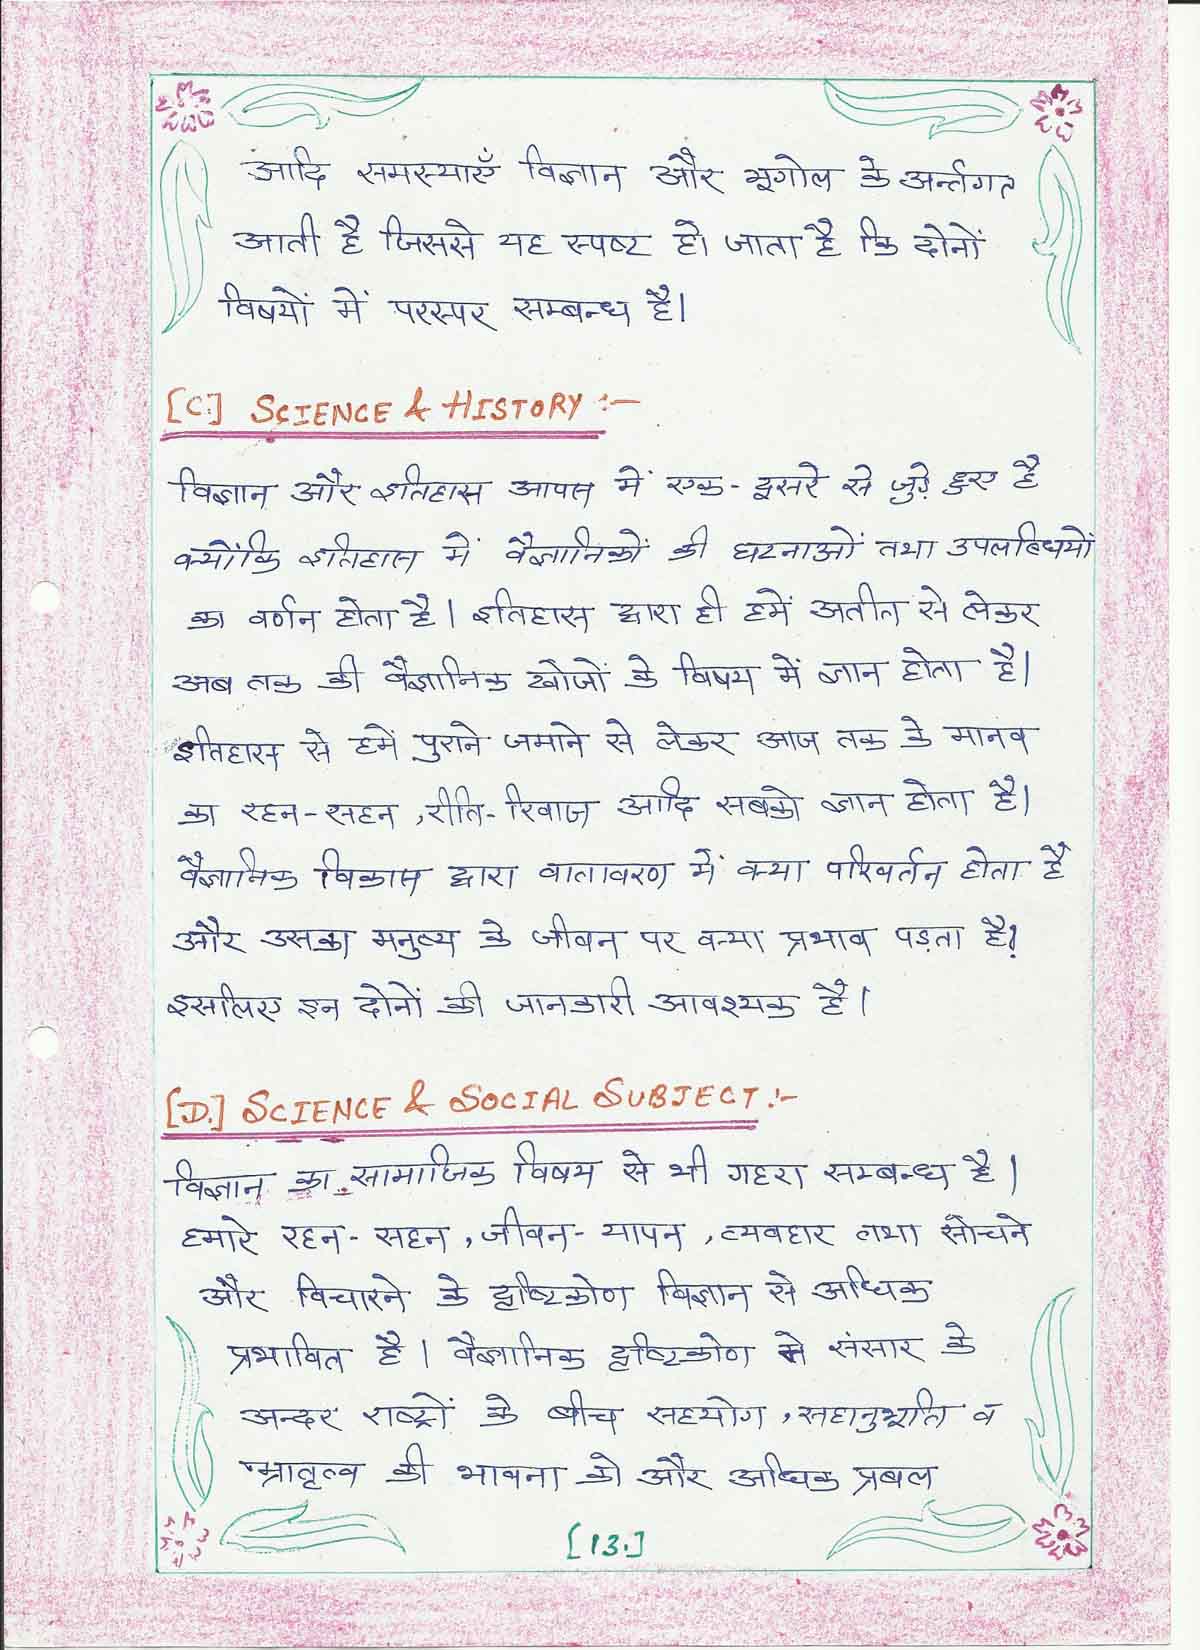 आदि समस्याएँ विज्ञान और भूगोल के अर्न्तगत
आती है जिससे यह स्पष्ट हो जाता है कि दोनों
विषयों में परस्पर सम्बन्ध है।
[C.] SCIENCE & HISTORY :-
विज्ञान और इतिहास आपस में एक-दूसरे से जुड़े हुए है
क्योंकि इतिहास में वैज्ञानिकों की घटनाओं तथा उपलब्धियों
का वर्णन होता है। इतिहास द्वारा ही हमें अतीत से लेकर
अब तक की वैज्ञानिक खोजों के विषय में ज्ञान होता है।
इतिहास से हमें पुराने जमाने से लेकर आज तक के मानव
का रहन-सहन, रीति-रिवाज आदि सबको ज्ञान होता है।
वैज्ञानिक विकास द्वारा वातावरण में क्या परिवर्तन होता है
और उसका मनुष्य के जीवन पर क्या प्रभाव पड़ता है?
इसलिए इन दोनों की जानकारी आवश्यक है।
[D.] SCIENCE & SOCIAL SUBJECT :-
विज्ञान का सामाजिक विषय से भी गहरा सम्बन्ध है।
हमारे रहन-सहन, जीवन-यापन, व्यवहार तथा सोचने
और विचारने के दृष्टिकोण विज्ञान से अधिक
प्रभावित है। वैज्ञानिक दृष्टिकोण ने संसार के
अन्दर राष्ट्रों के बीच सहयोग, सहानुभूति व
भ्रातृत्व की भावना को और अधिक प्रबल
[13.]